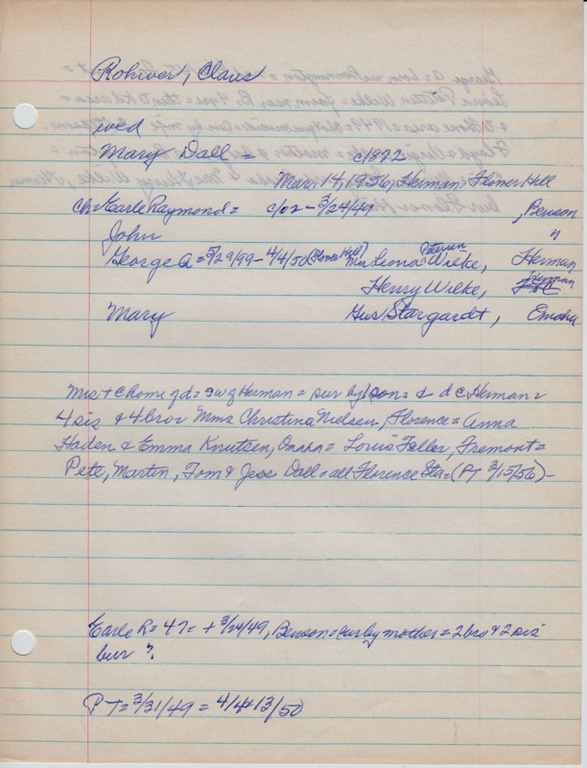 Rohwer, Claus
wed
Mary Dall = c/1872
Mar. 14, 1956, Herman-Flower Hill
ch: Earle Raymond = c/02 - 3/24/49 , Benson
John "
George A = 5/29/99 - 4/4/50 (Flower Hill) Mrs Leona Petersen Wilke, Herman
Henry Wilke, Herman
Mary Gus Stargardt, Omaha
Mrs + @ home of d = 9 w of Herman = sur by 1 son = & d @ Herman =
4 sis & 4 bro = Mmes Christina Nielsen, Florence = Anna
Haden & Emma Knutsen, Omaha = Louis Feller, Fremont =
Pete, Martin, Tom & Jess Dall = all Florence Sta = (PT 3/15/56) -
Earle R = 47 = + 3/24/49, Benson = sur by mother = 2 bro & 2 sis
bur ?
PT = 3/31/49 = 4/4+13/50